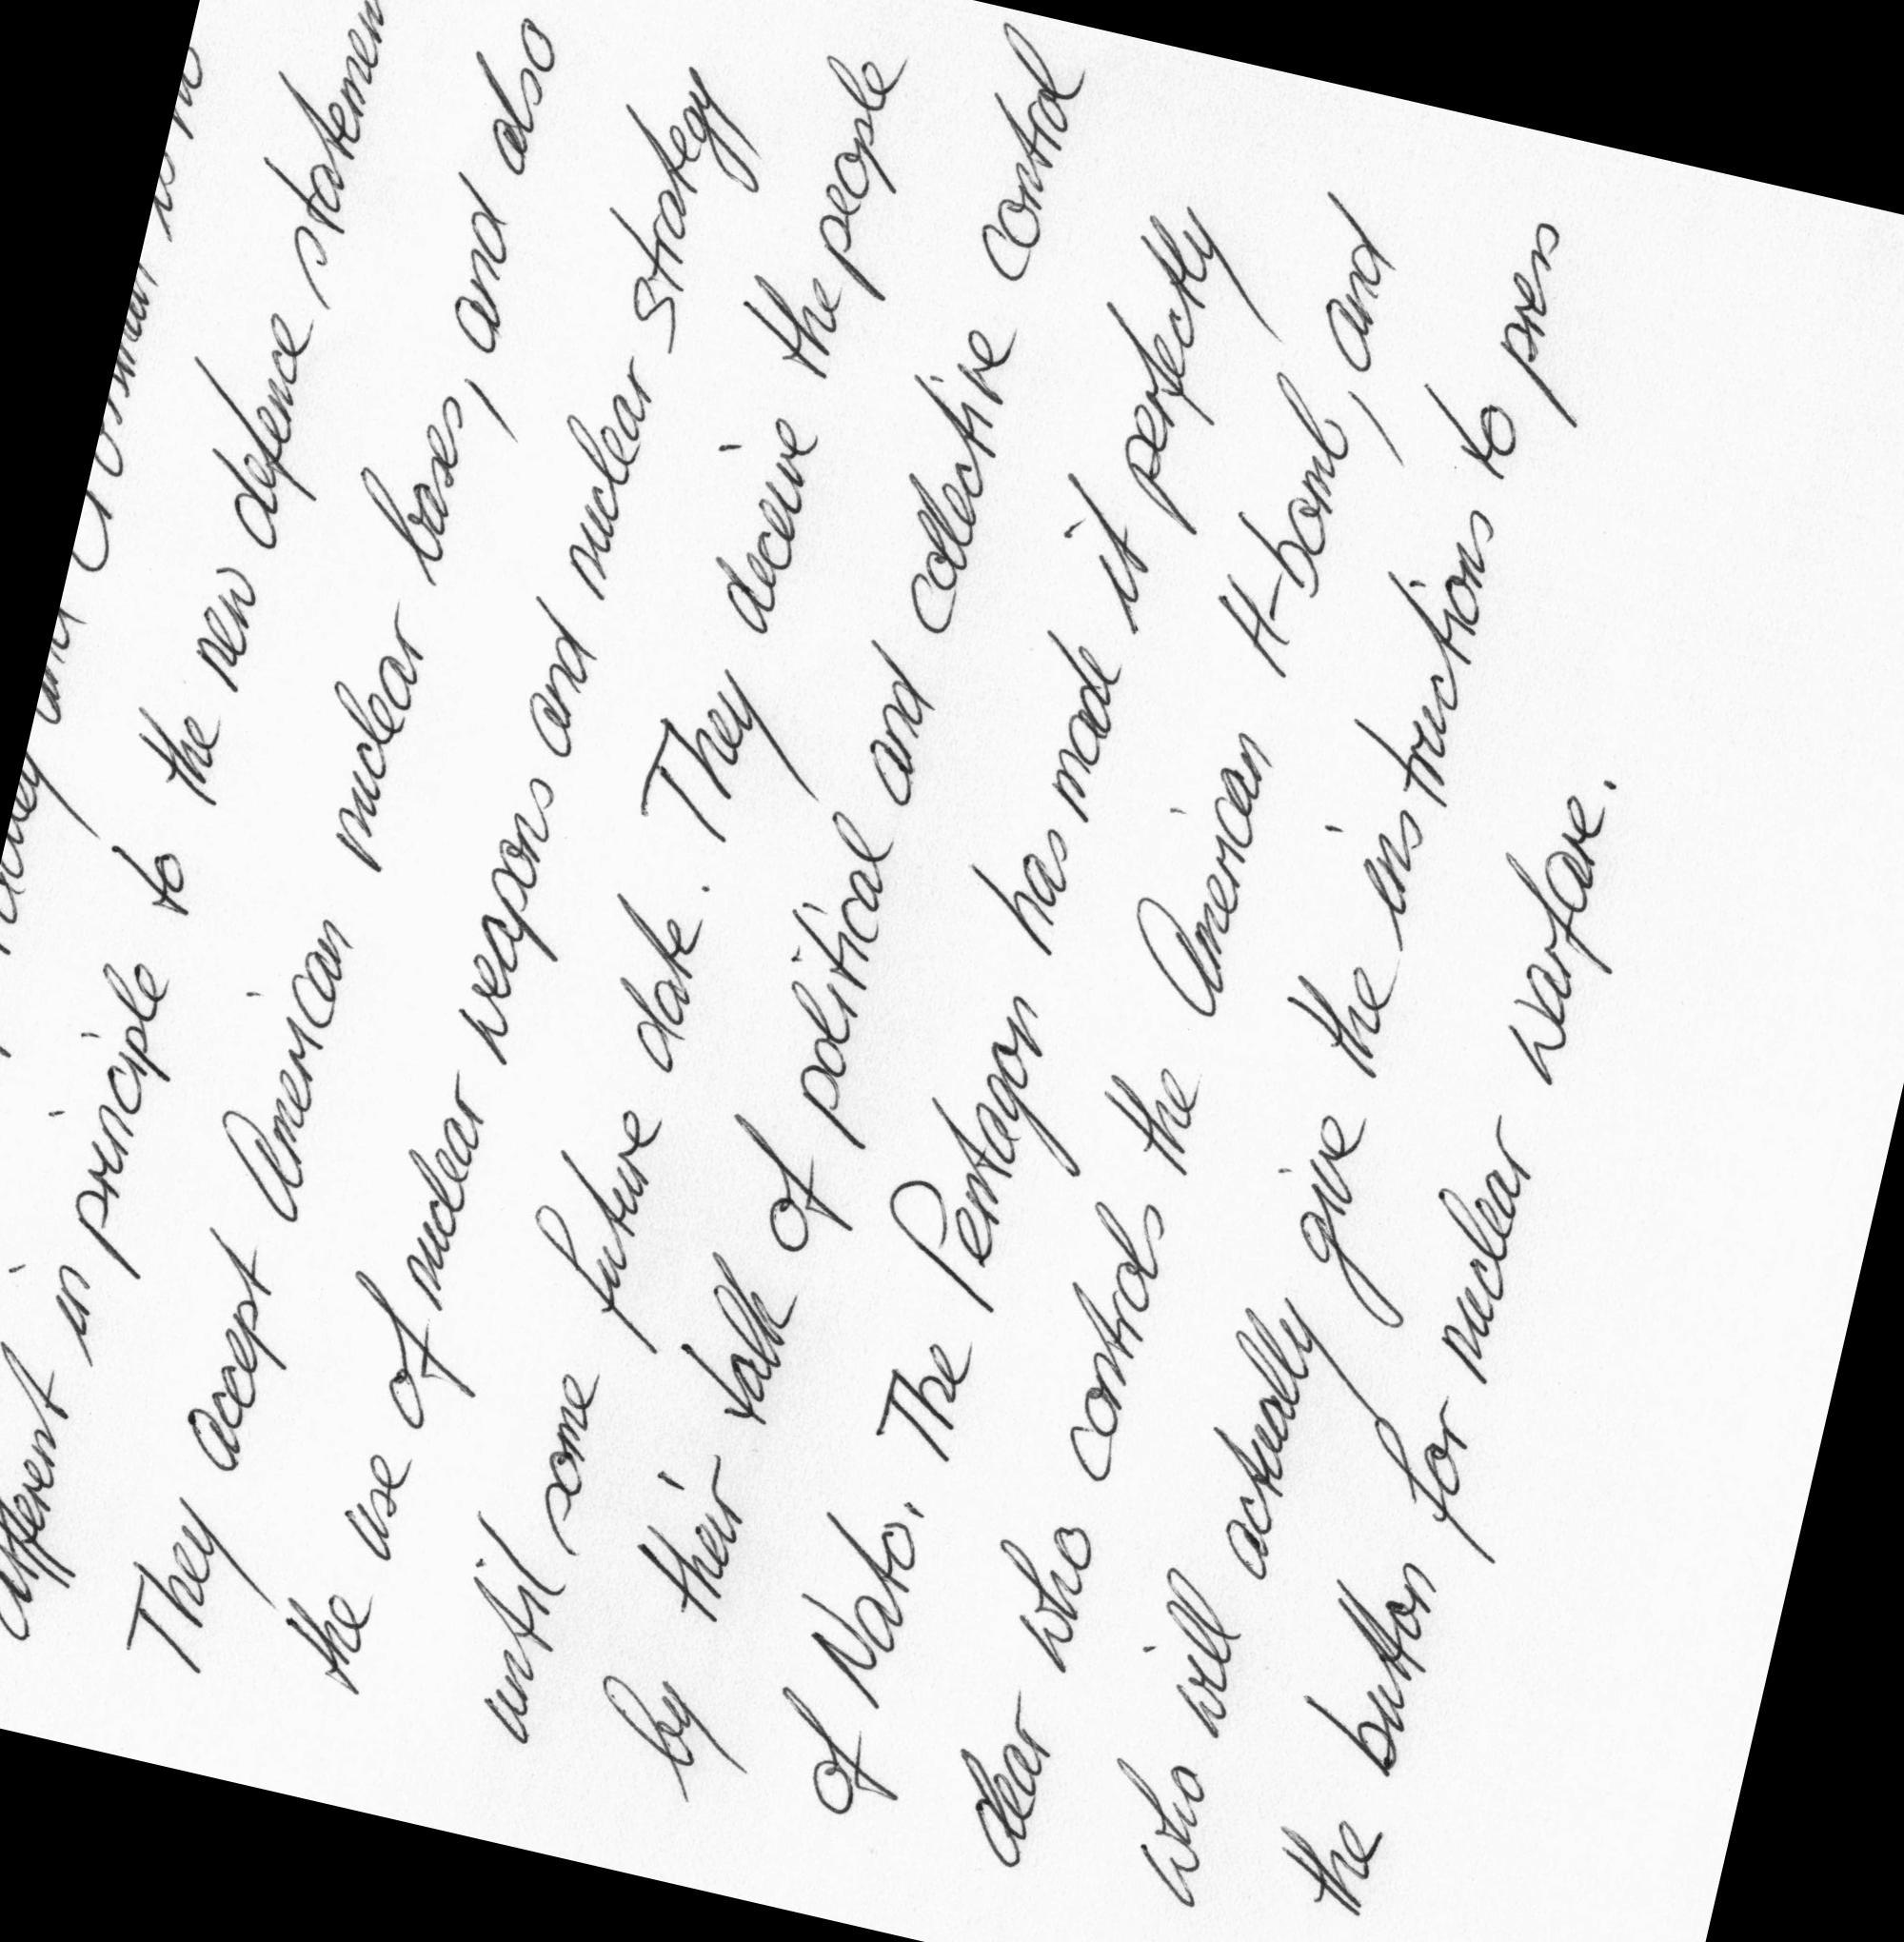 and Crossman is no
different in principle to the new defence statemen
They accept American nuclear bases, and also
the use of nuclear weapons and nuclear strategy
until some future date. They deceive the people
by their talk of political and collective control
of Nato. The Pentagon has made it perfectly
clear who controls the American H-bomb, and
who will actually give the instructions to press
the button for nuclear warfare.